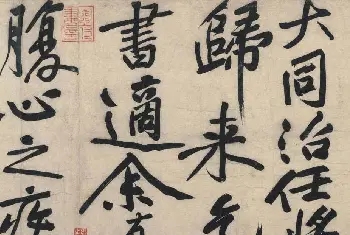 大同治任將
歸来乞
書適余有
腹心之疾